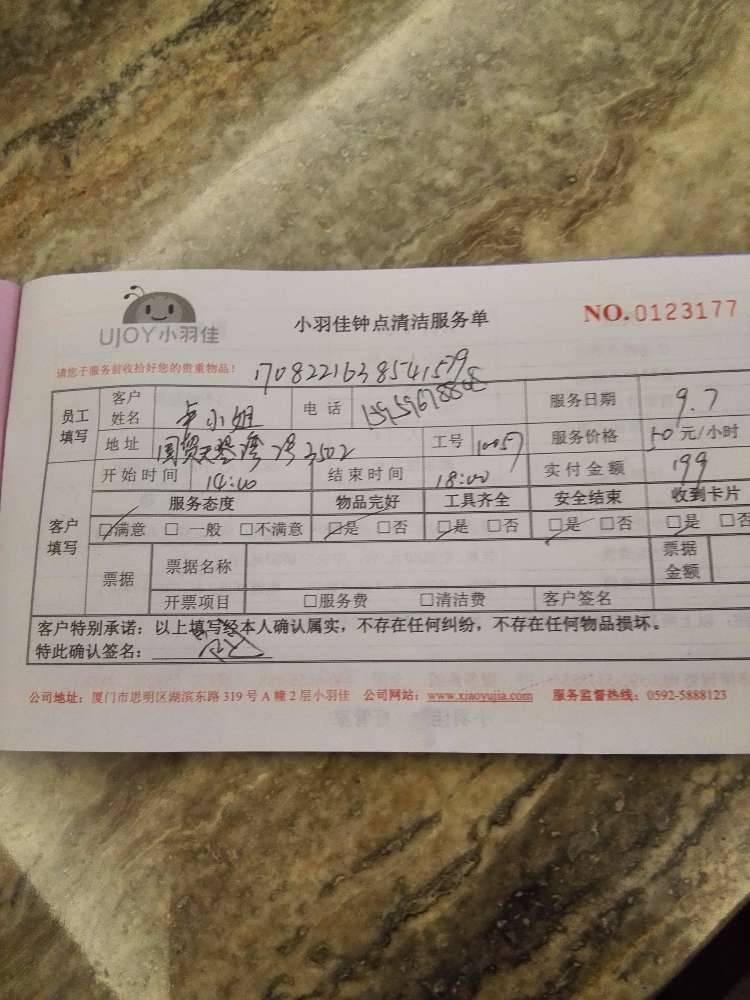 UJOY小羽佳
小羽佳钟点清洁服务单
NO.0123177
请您于服务前收拾好您的贵重物品！
1708221638541579
员工填写 客户姓名 卢小姐 电话 服务日期 9.7
地址 国贸天琴湾 3502 工号 10057 服务价格 50元/小时
客户填写 开始时间 14:00 结束时间 18:00 实付金额 199
服务态度 物品完好 工具齐全 安全结束 收到卡片
□满意 □一般 □不满意 □是 □否 □是 □否 □是 □否 □是 □否
票据 票据名称 票据金额
开票项目 □服务费 □清洁费 客户签名
客户特别承诺：以上填写经本人确认属实，不存在任何纠纷，不存在任何物品损坏。
特此确认签名：
公司地址：厦门市思明区湖滨东路 319 号 A 幢 2 层小羽佳 公司网站：www.xiaoyujia.com 服务监督热线：0592-5888123